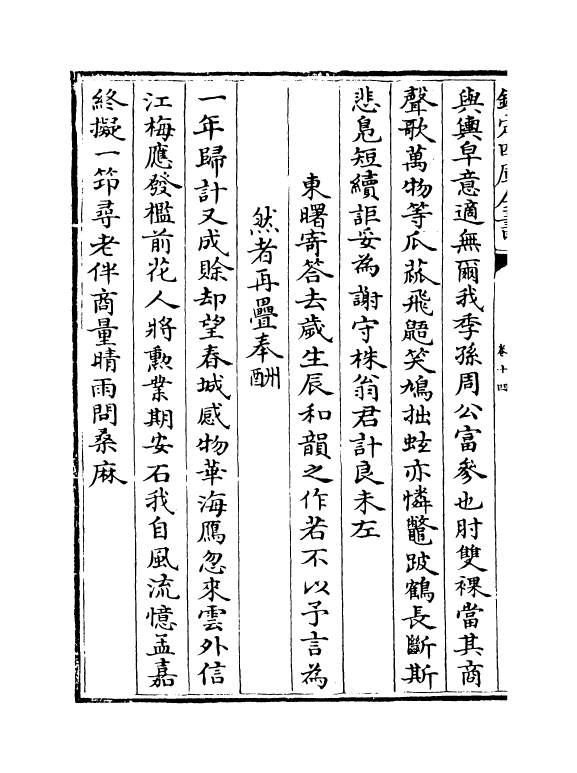 欽定四庫全書
卷十四
與輿皁意適無爾我季孫周公富參也肘雙裸當其商
聲歌萬物等瓜蓏飛鼯笑鳩拙蚿亦憐鼈跛鶴長斷斯
悲鳬短續詎妥為謝守株翁君計良未左
東曙寄答去歲生辰和韻之作若不以予言為
然者再疊奉酬
一年歸計又成賒却望春城感物華海鴈忽來雲外信
江梅應發檻前花人將勲業期安石我自風流憶孟嘉
終擬一筇尋老伴商量晴雨問桑麻